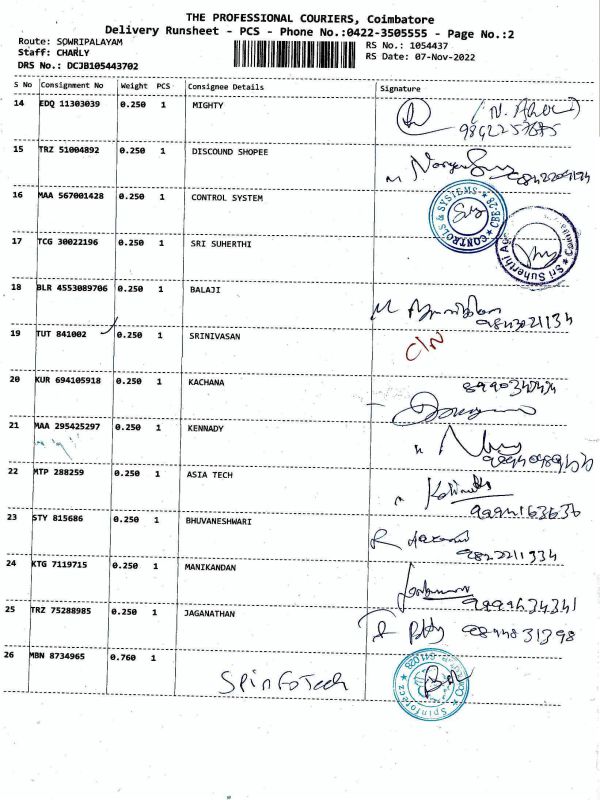 THE PROFESSIONAL COURIERS, Coimbatore
Delivery Runsheet - PCS - Phone No.:0422-3505555 - Page No.:2
Route: SOWRIPALAYAM
Staff: CHARLY
DRS No.: DCJB105443702
RS No.: 1054437
RS Date: 07-Nov-2022
S No Consignment No Weight PCS Consignee Details Signature
14 EDQ 11303039 0.250 1 MIGHTY
15 TRZ 51004892 0.250 1 DISCOUND SHOPEE
16 MAA 567001428 0.250 1 CONTROL SYSTEM
CONTROLS & SYSTEMS * CBE-28 *
17 TCG 30022196 0.250 1 SRI SUHERTHI
Sri Suherthi
18 BLR 4553089706 0.250 1 BALAJI
9843021134
19 TUT 841002 0.250 1 SRINIVASAN C/N
20 KUR 694105918 0.250 1 KACHANA
21 MAA 295425297 0.250 1 KENNADY
22 MTP 288259 0.250 1 ASIA TECH
9994163636
23 STY 815686 0.250 1 BHUVANESHWARI
9822211334
24 KTG 7119715 0.250 1 MANIKANDAN
9899634341
25 TRZ 75288985 0.250 1 JAGANATHAN
9844831398
26 MBN 8734965 0.760 1 SPINFOTech